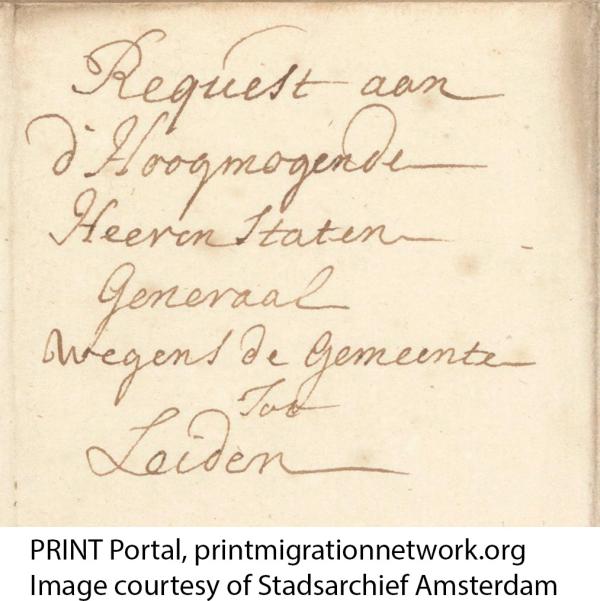 Request aan
d'Hoogmogende
Heeren Staten
Generaal
wegens de Gemeente
Tot
Leiden
PRINT Portal, printmigrationnetwork.org
Image courtesy of Stadsarchief Amsterdam